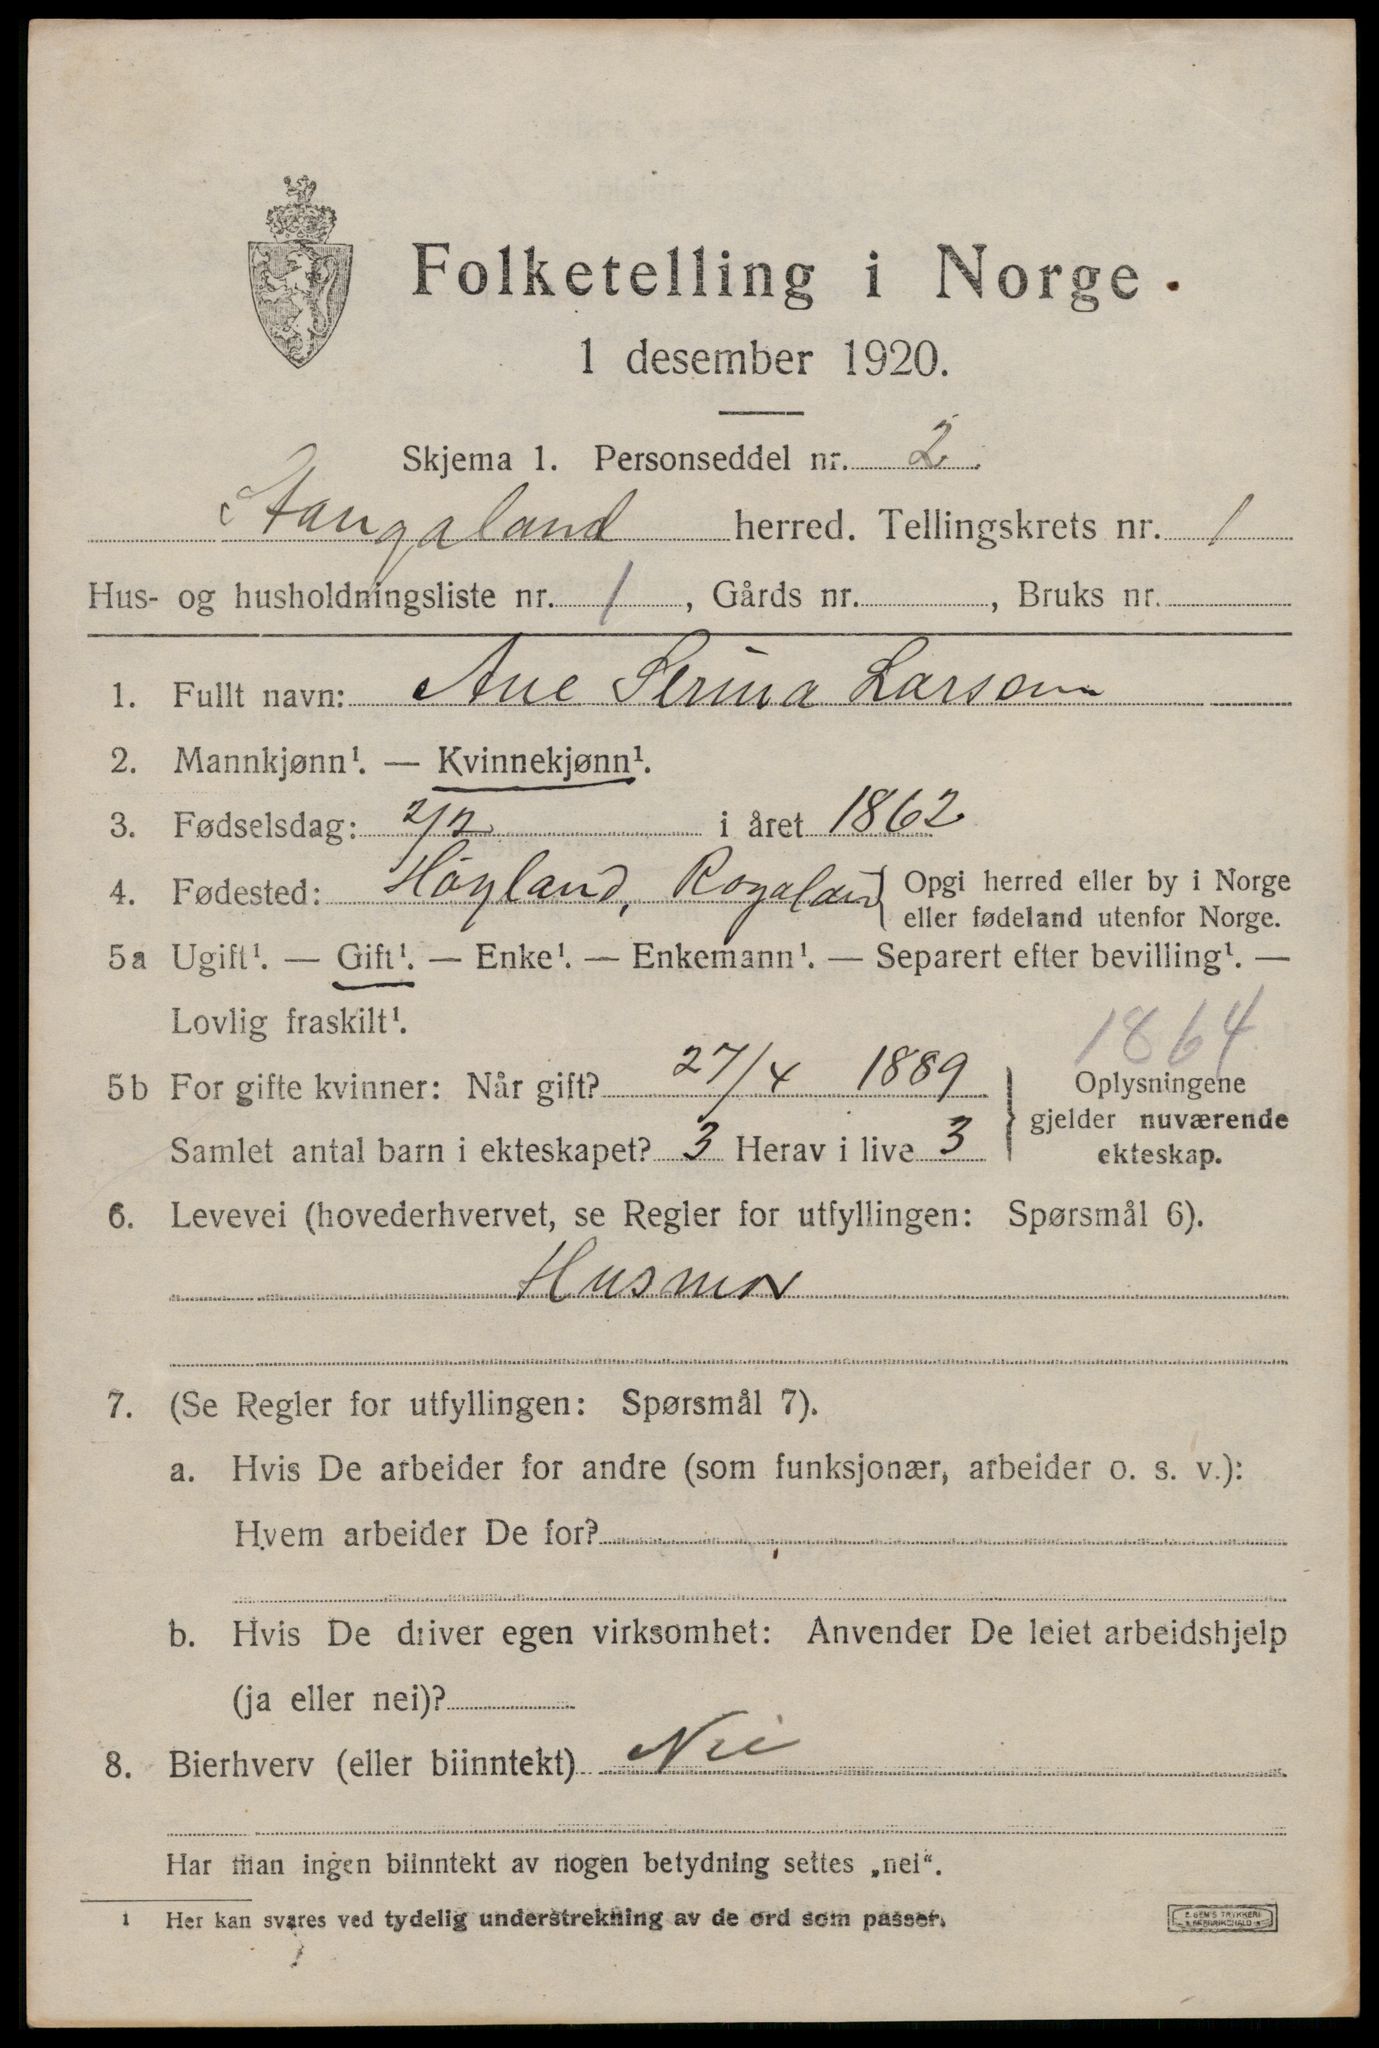 Folketelling i Norge
1 desember 1920.
Skjema 1. Personseddel nr. 2
Stangaland herred. Tellingskrets nr. 1
Hus- og husholdningsliste nr. 1, Gårds nr. , Bruks nr.
1. Fullt navn: Ane Serina Larsen
2. Mannkjønn¹. — Kvinnekjønn¹.
3. Fødselsdag: 2/2 i året 1862
4. Fødested: Høyland, Rogaland } Opgi herred eller by i Norge
eller fødeland utenfor Norge.
5a Ugift¹. — Gift¹. — Enke¹. — Enkemann¹. — Separert efter bevilling¹. —
Lovlig fraskilt¹.
1864
5b For gifte kvinner: Når gift? 27/4 1889
Samlet antal barn i ekteskapet? 3 Herav i live 3
Oplysningene
gjelder nuværende
ekteskap.
6. Levevei (hovederhvervet, se Regler for utfyllingen: Spørsmål 6).
Husmor
7. (Se Regler for utfyllingen: Spørsmål 7).
a. Hvis De arbeider for andre (som funksjonær, arbeider o. s. v.):
Hvem arbeider De for?
b. Hvis De driver egen virksomhet: Anvender De leiet arbeidshjelp
(ja eller nei)?
8. Bierhverv (eller biinntekt) Nei
Har man ingen biinntekt av nogen betydning settes „nei“.
¹ Her kan svares ved tydelig understrekning av de ord som passer.